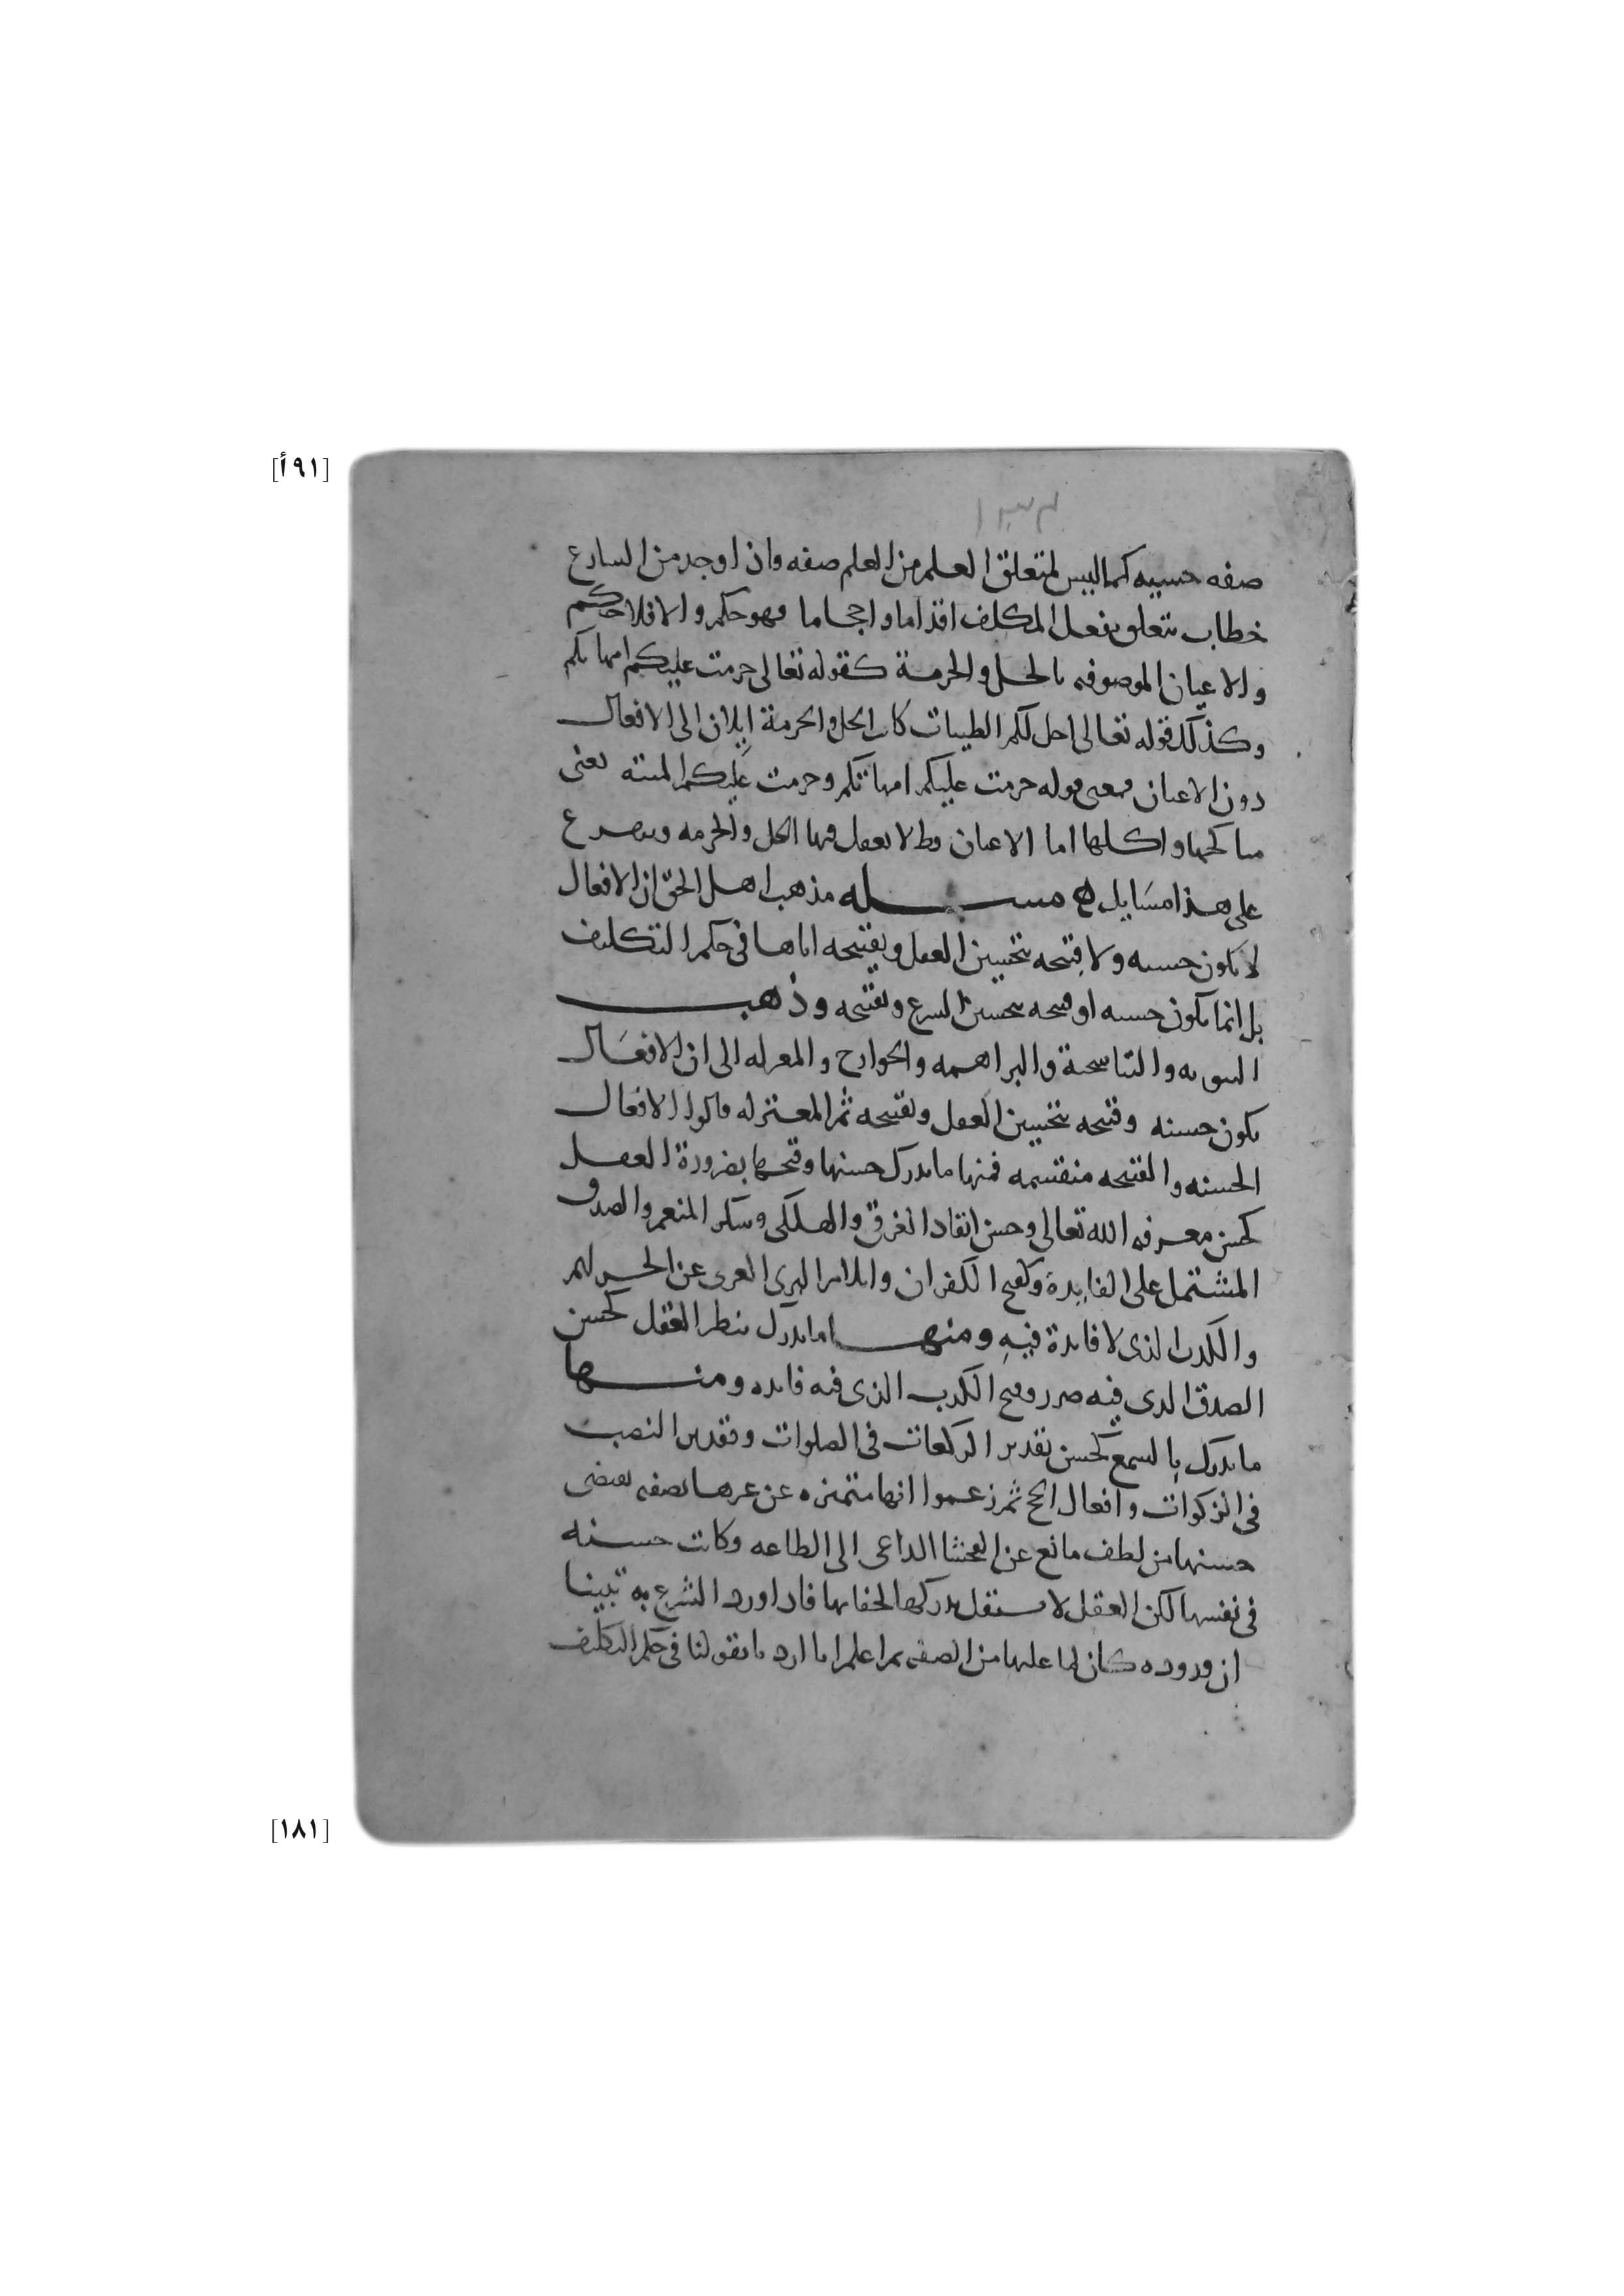 [٩١أ]
صفه حسيه كما ليس لمتعلق العلم من العلم صفه واذا وجد من الشارع
خطاب يتعلق بفعل المكلف اقداما واحجاما فهو حكم والا فلا حكم
والاعيان الموصوفه بالحل والحرمة كقوله تعالى حرمت عليكم امهاتكم
وكذلك قوله تعالى احل لكم الطيبات كان الحل والحرمة ايلان الى الافعال
دون الاعيان فمعنى قوله حرمت عليكم امهاتكم وحرمت عليكم الميته يعني
مناكحتها واكلها اما الاعيان قط لا يعقل فيها الحل والحرمه ويتفرع
على هذا مسايل مسـله مذهب اهل الحق ان الافعال
لا تكون حسنه ولا قبيحه بتحسين العقل وتقبيحه اياها في حكم التكليف
بل انما تكون حسنه او قبيحه بتحسين الشرع وتقبيحه وذهب
الثنويه والتناسخية والبراهمه والخوارج والمعتزله الى ان الافعال
تكون حسنه وقبيحه بتحسين العقل وتقبيحه ثم المعتزله قالوا الافعال
الحسنه والقبيحه منقسمه فمنها ما يدرك حسنها وقبحها بضرورة العقل
كحسن معرفه الله تعالى وحسن انقاذ الغرقى والهلكى وشكر المنعم والصدق
المشتمل على الفايدة وكقبح الكفران وايلام البرى العرى عن الجريمه
والكذب الذى لا فايدة فيه ومنها ما يدرك بنظر العقل كحسن
الصدق الذى فيه ضرر وقبح الكذب الذى فيه فايده ومنها
ما يدرك بالسمع كحسن تقدير الركعات في الصلوات وتقدير النصب
في الزكوات وافعال الحج ثم زعموا انها متميزه عن غيرها بصفه تقتضي
حسنها من لطف مانع عن الفحشا الداعي الى الطاعه وكانت حسنه
في نفسها لكن العقل لا يستقل بدركها لخفايها فاذا ورد الشرع به تبينا
ان وروده كان لما عليها من الصفه ثم اعلم انا اردنا بقولنا في حكم التكليف
[١٨١]